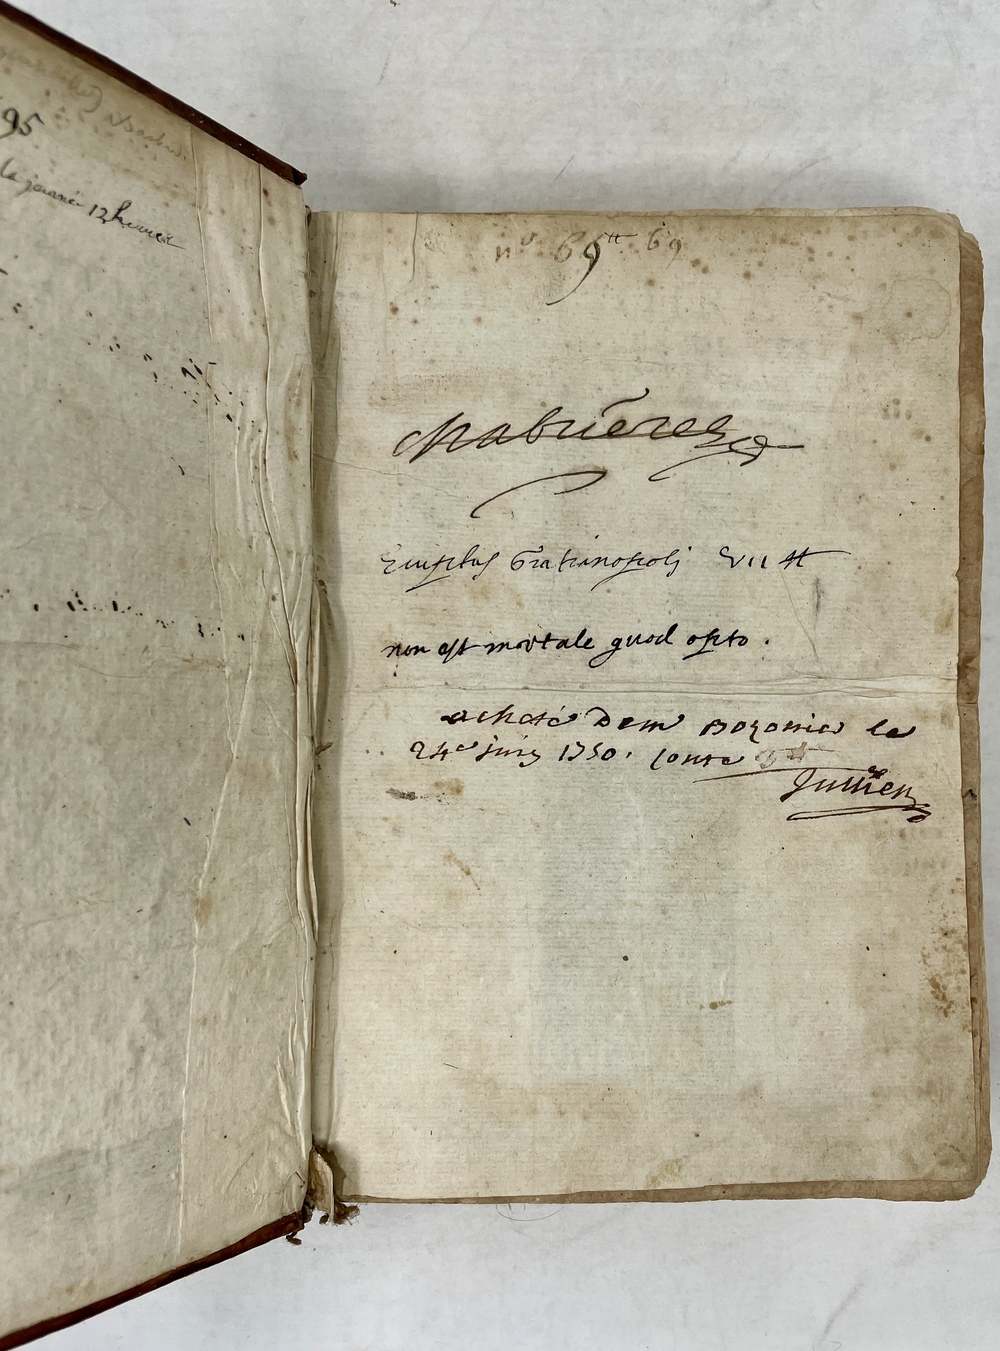 95
la journée 12 heures
n° 69tt 69
Chabrieres
Emptus Gratianopoli VII tt
non est mortale quod opto.
acheté de mr le
24e juin 1750.
Jullien